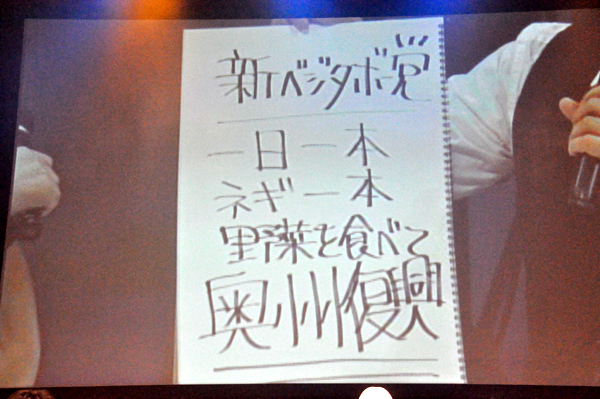 新ベジタボー党
一日一本
ネギ一本
野菜を食べて
奥州復興